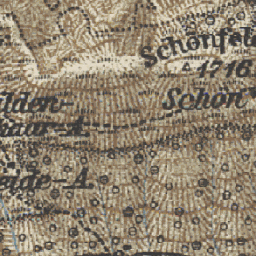 Schönfeld
1716
Schön
lden-
kaar-A.
eide-A.